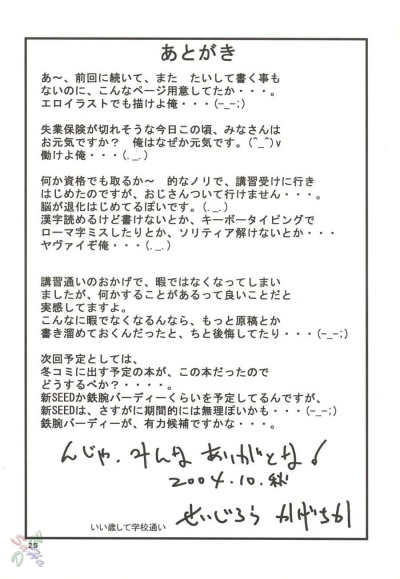 あとがき
あ～、前回に続いて、また　たいして書く事も
ないのに、こんなページ用意してたか・・・。
エロイラストでも描けよ俺・・・(-_-;)
失業保険が切れそうな今日この頃、みなさんは
お元気ですか？　俺はなぜか元気です。(^_^)v
働けよ俺・・・(._.)
何か資格でも取るか～　的なノリで、講習受けに行き
はじめたのですが、おじさんついて行けません・・・。
脳が退化はじめてるぽいです。(._.)
漢字読めるけど書けないとか、キーボータイピングで
ローマ字ミスしたりとか、ソリティア解けないとか・・・
ヤヴァイぞ俺・・・(._.)
講習通いのおかげで、暇ではなくなってしまい
ましたが、何かすることがあるって良いことだと
実感してますよ。
こんなに暇でなくなるんなら、もっと原稿とか
書き溜めておくんだったと、ちと後悔してたり・・・(-_-;)
次回予定としては、
冬コミに出す予定の本が、この本だったので
どうするべか？・・・・。
新SEEDか鉄腕バーディーくらいを予定してるんですが、
新SEEDは、さすがに期間的には無理ぽいかも・・・(-_-;)
鉄腕バーディーが、有力候補ですかな・・・。
んじゃ、みんなありがとな！
2004.10.秋
せいじろう かげちか
いい歳して学校通い
25